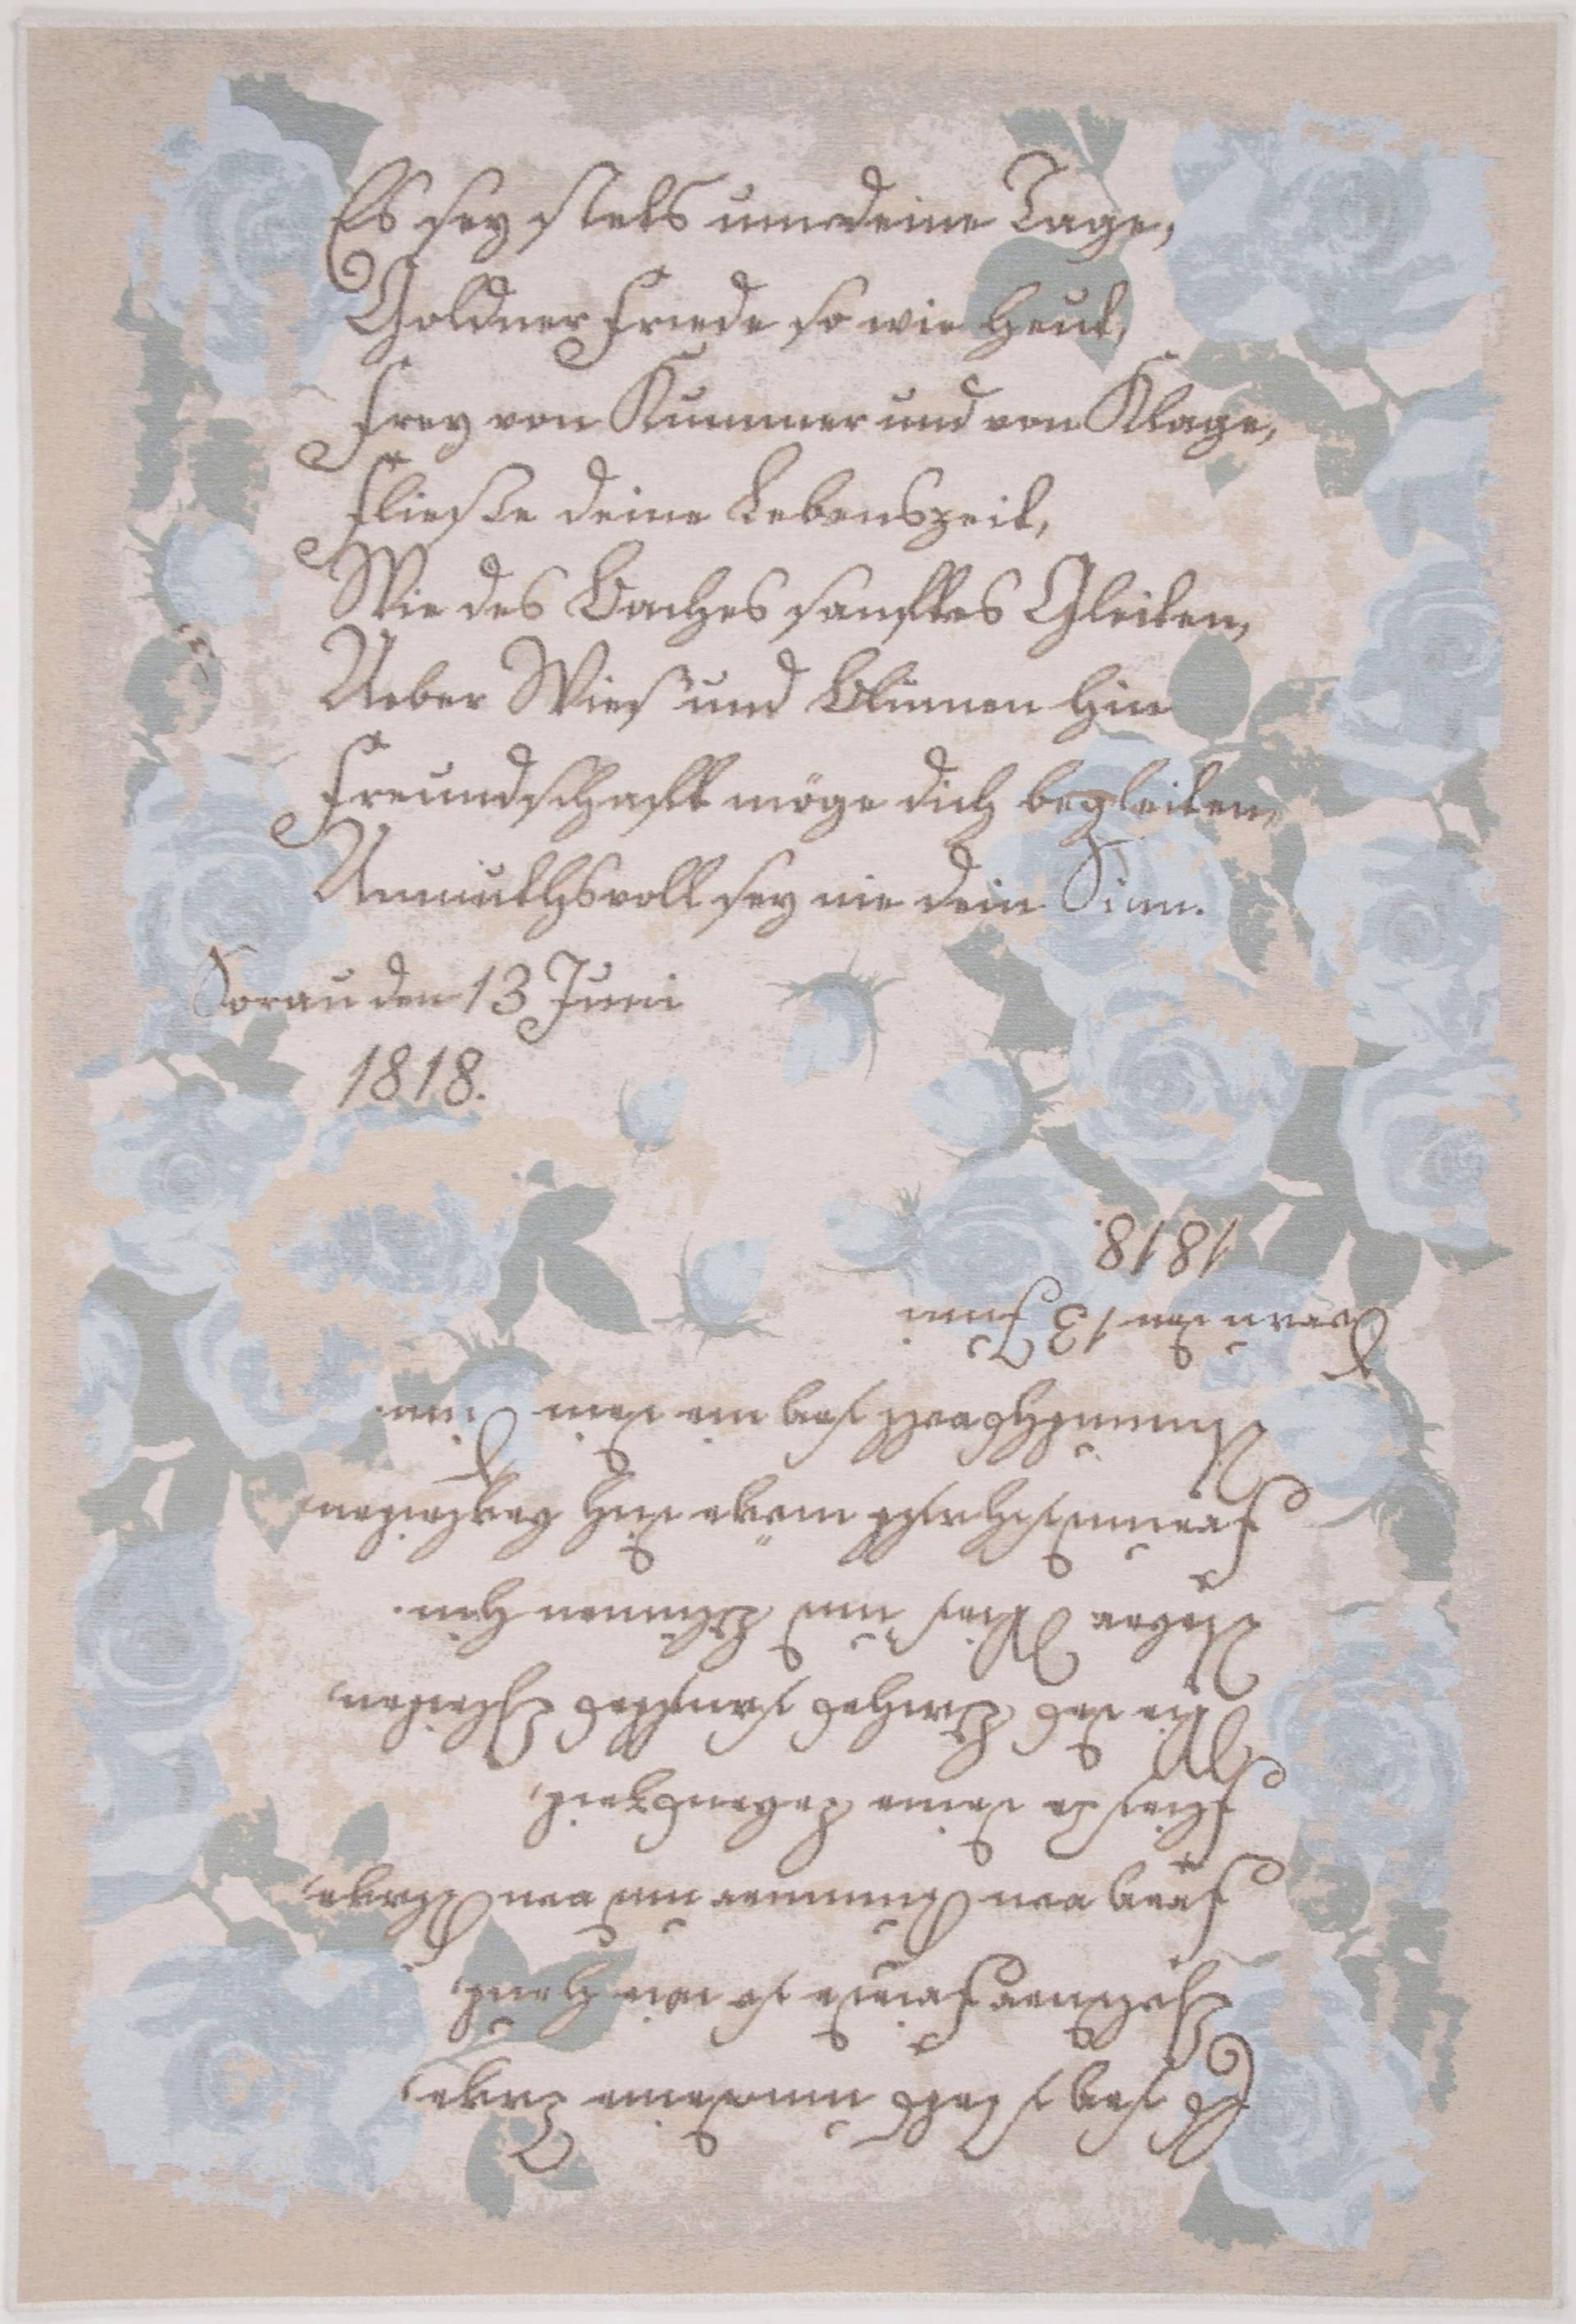 Es sey stets um deine Tage,
Goldner Friede so wie heut,
Frey von Kummer und von Klage,
Fließe deine Lebenszeit,
Wie des Baches sanftes Gleiten,
Ueber Wies' und Blumen hin
Freundschaft möge dich begleiten,
Unmuthsvoll sey nie dein Sinn.
Sorau den 13 Juni
1818.
1818.
Sorau den 13 Juni
Unmuthsvoll sey nie dein Sinn.
Freundschaft möge dich begleiten,
Ueber Wies' und Blumen hin.
Wie des Baches sanftes Gleiten,
Fließe deine Lebenszeit,
Frey von Kummer und von Klage,
Goldner Friede so wie heut,
Es sey stets um deine Tage,